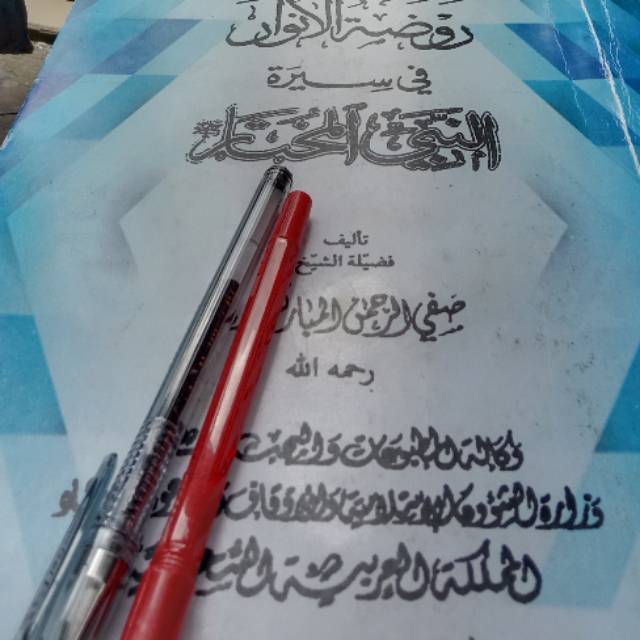 روضة الأنوار
في سيرة
النبي المختار
تأليف
فضيلة الشيخ
صفي الرحمن المبار
رحمه الله
وكالة المطبوعات والبحث
وزارة الشؤون الإسلامية والأوقاف
المملكة العربية